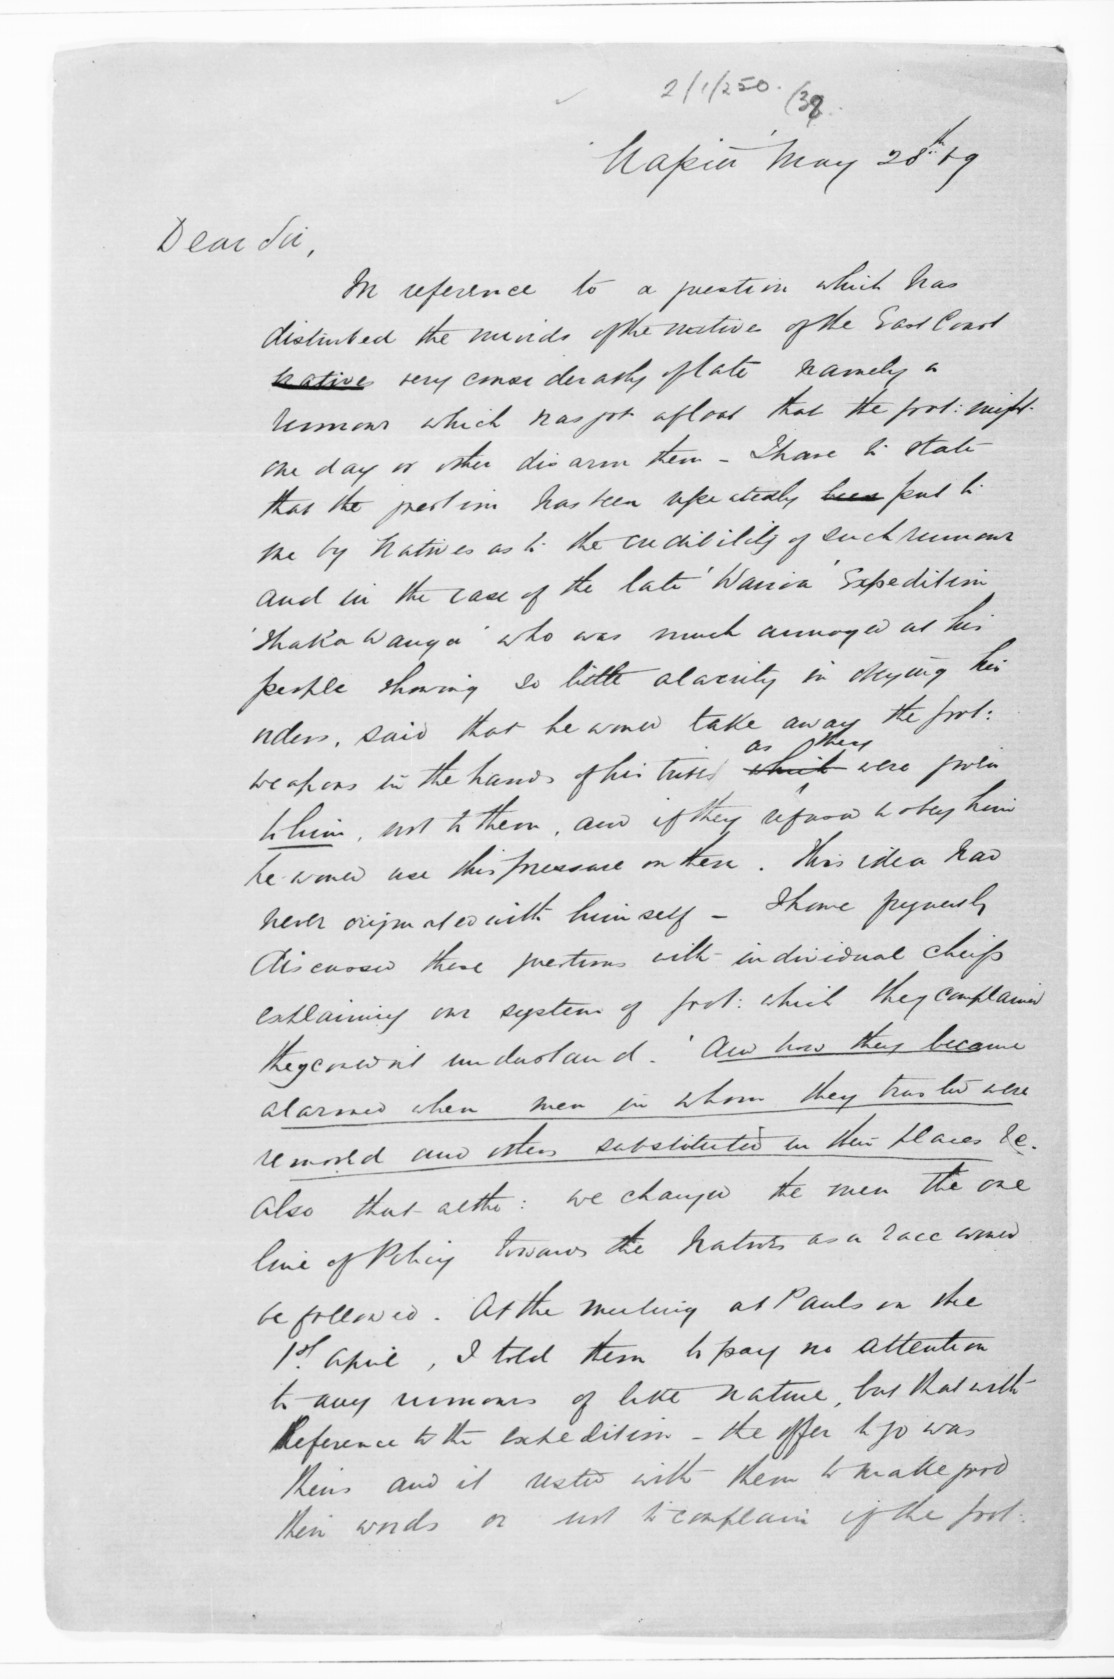 2/1/250. (38
Napier May 28th 69
Dear Sir,
In reference to a question which has
disturbed the minds of the natives of the East Coast
Natives very considerably of late namely a
rumour which has got afloat that the govt: might
one day or other disarm them - I have to state
that the question has been repeatedly been put to
me by Natives as to the credibility of such rumour
and in the case of the late 'Wairoa' Expedition
'Ihaka Wanga' who was much annoyed at his
people showing so little alacrity in obeying his
orders, said that he would take away the govt:
as they
weapons in the hands of his tribes which were given
to him, not to them, and if they refused to obey him
he would use this pressure on them. This idea had
never originated with himself - I have frequently
discussed these questions with individual cheifs
explaining our system of govt: which they complained
they could not understand. 'And how they became
alarmed when men in whom they trusted were
removed and others substituted in their places &c.
Also that altho: we changed the men the one
line of Policy towards the Natives as a race would
be followed. At the meeting at Pauls on the
1st April, I told them to pay no attention
to any rumours of like nature, but that with
Reference to the expedition - the offer to go was
theirs and it rested with them to make good
their words or not to complain if the govt: